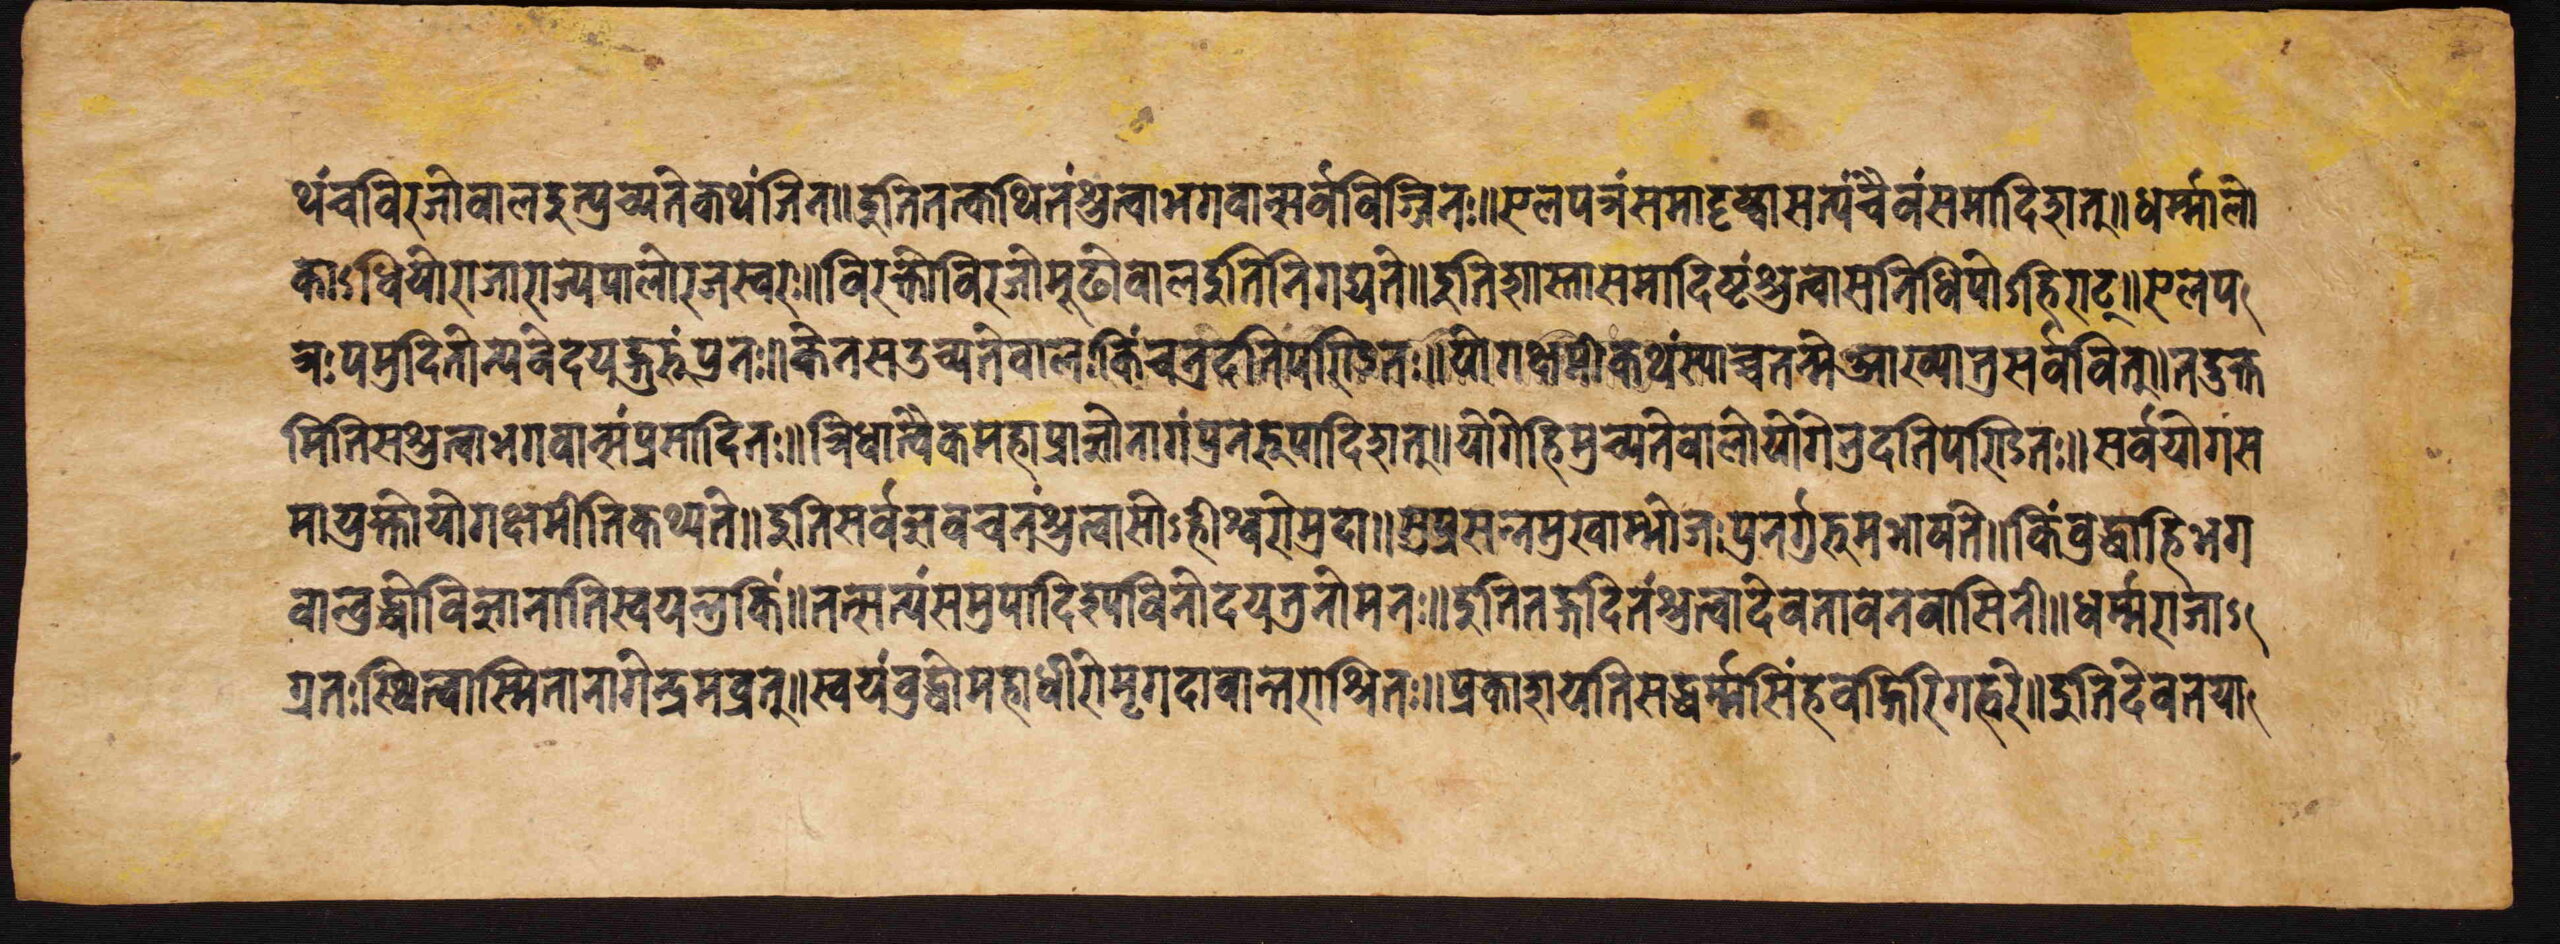 थंच विरजो वाल इत्युच्यते कथं जिन॥ इति तत्कथितं श्रुत्वा भगवान्सर्वविज्जिनः॥ एलपत्रं समादृष्ट्वा सत्यं चैवं समादिशत्॥ धर्म्मालो
काऽधियो राजा राज्यपालो रजस्वरः॥ विरक्तो विरजो मूढो वाल इति निगद्यते॥ इति शास्ता समादिष्टं श्रुत्वा स निधिपोऽहिराट्॥ एलप
त्रः पमुदितो न्यवेदयद्गुरुं पुनः॥ केन स उच्यते वालः किं च नुदति पण्डितः॥ योगक्षमी कथं स्याच्च तन्मे आख्यातु सर्ववित्॥ तदुक्त
मिति स श्रुत्वा भगवान्संप्रसादितः॥ त्रिधात्वैकमहाप्राज्ञो नागं पुनरुपादिशत्॥ योगे हि मुच्यते वालो योगे नुदति पण्डितः॥ सर्वयोगस
मायुक्तो योगक्षमीति कथ्यते॥ इति सर्वज्ञवचनं श्रुत्वासोऽहीश्वरो मुदा॥ सुप्रसन्नमुखाम्भोजः पुनर्गुरुमभाषते॥ किं वुद्धो हि भग
वान्वुद्धो विज्ञानाति स्वयन्नु किं॥ तत्सत्यं समुपादिश्य विनोदयतु नो मनः॥ इति तद्गदितं श्रुत्वा देवता वनवासिनी॥ धर्म्मराजाऽ
ग्रतः स्थित्वा स्मिता नागेन्द्रमव्रवत्॥ स्वयं वुद्धो महाधीरो मृगदावान्तराश्रितः॥ प्रकाशयति सद्धर्म्म सिंहवद्गिरिगह्वरे॥ इति देवतया